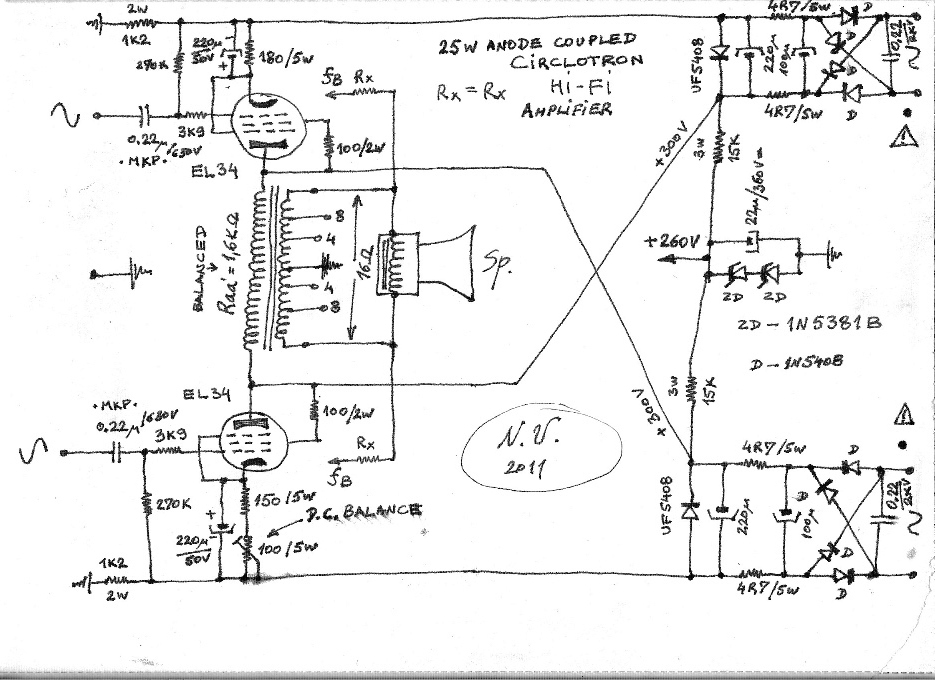 2W
1K2
270K
220µ
50V
+
180/5W
fB Rx
25W ANODE COUPLED
CIRCLOTRON
Rx = Rx Hi-Fi
AMPLIFIER
4R7/5W
D
UF5408
220µ
100µ
D
D
0,22
2KV
4R7/5W
D
3K9
0.22µ/630V
.MKP.
100/2W
EL34
+300V
3W
15K
22µ/360V=
+260V
ZD
ZD
ZD - 1N5381B
D - 1N5408
BALANCED
Raa' = 1,6KΩ
8
4
4
8
16Ω
Sp.
3W
15K
+300V
EL34
.MKP.
0.22µ/630V
3K9
100/2W
Rx
fB
N.V.
2011
270K
+
220µ
50V
150/5W
D.C. BALANCE
100/5W
1K2
2W
4R7/5W
D
UF5408
220µ
D
100µ
D
0.22
2KV
4R7/5W
D